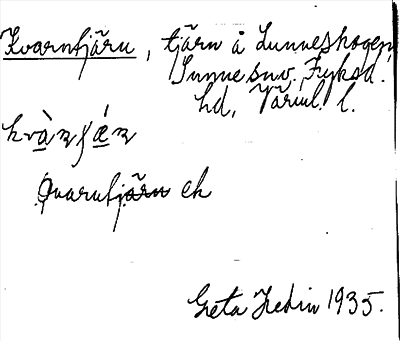 Kvarntjärn, tjärn å Sunneskogen,
Sunne snv. Fryksd.
hd, Värml. l.
kvàrnɧǽn
Qvarntjärn ek
Greta Hedin 1935.